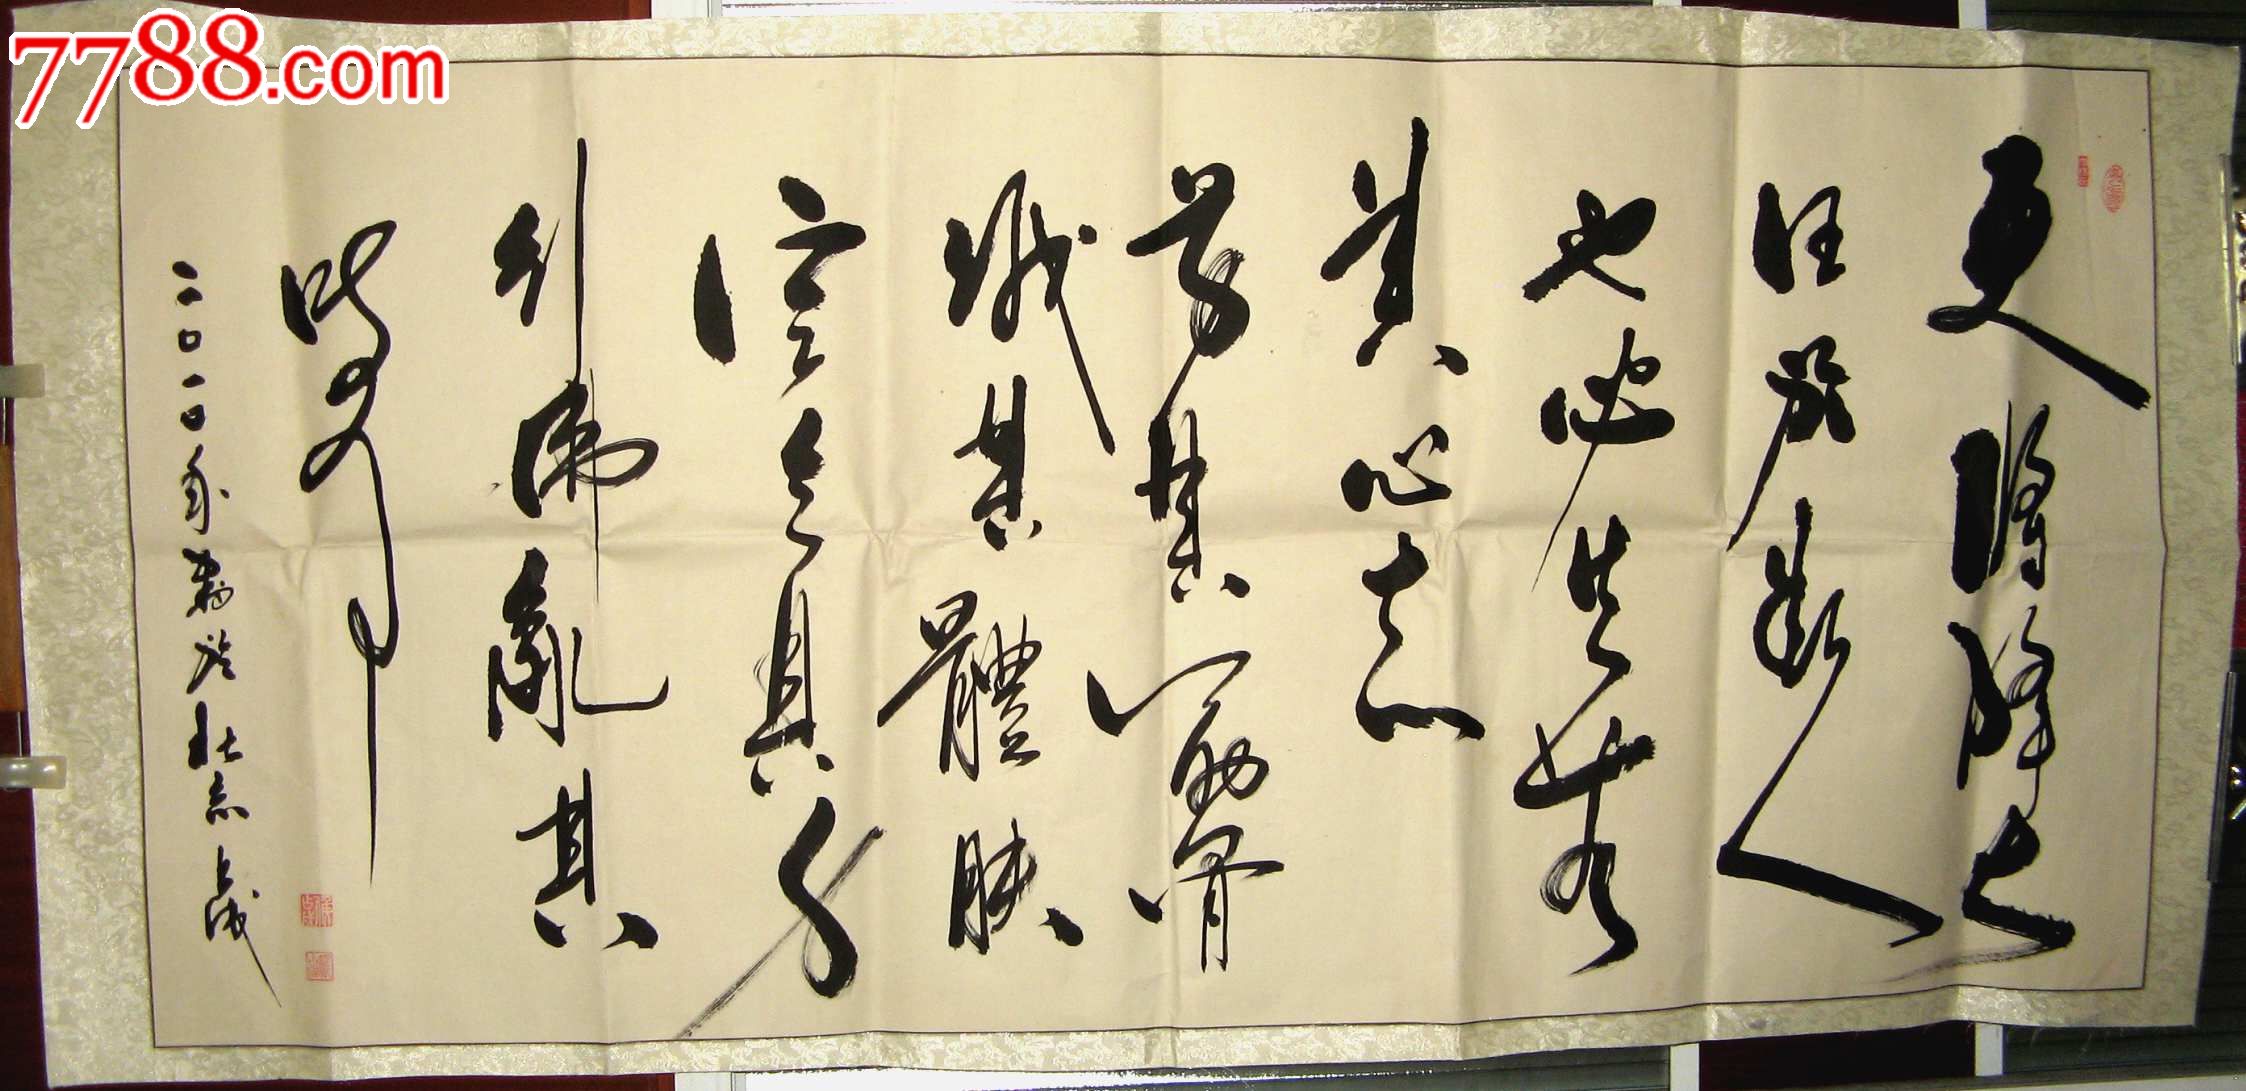 7788.com
天將降大
任於斯人
也必先苦
其心志
勞其筋骨
餓其體肤
空乏其身
行拂亂其
所為
二〇一〇年